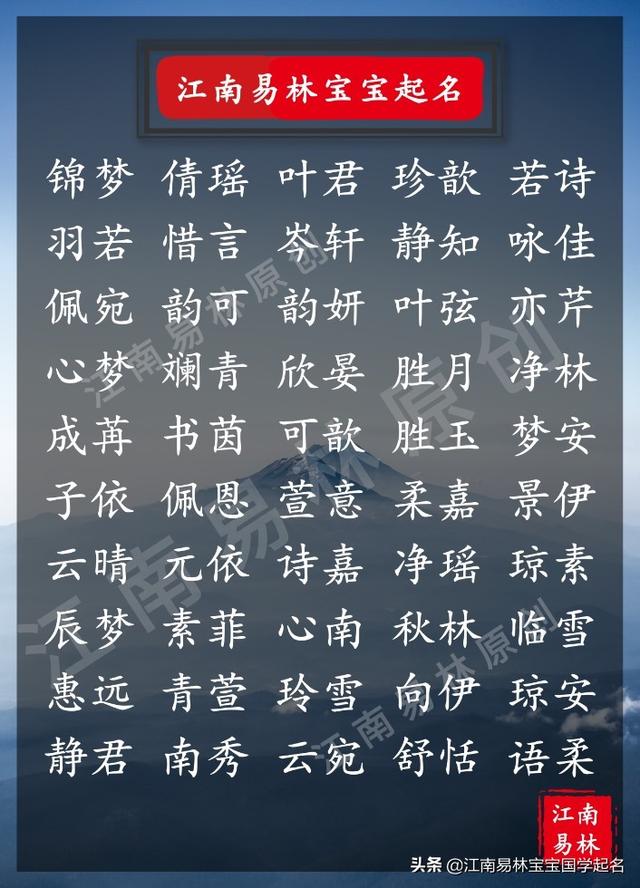 江南易林宝宝起名
锦梦 倩瑶 叶君 珍歆 若诗
羽若 惜言 岑轩 静知 咏佳
佩宛 韵可 韵妍 叶弦 亦芹
心梦 斓青 欣晏 胜月 净林
成苒 书茵 可歆 胜玉 梦安
子依 佩恩 萱意 柔嘉 景伊
云晴 元依 诗嘉 净瑶 琼素
辰梦 素菲 心南 秋林 临雪
惠远 青萱 玲雪 向伊 琼安
静君 南秀 云宛 舒恬 语柔
江南易林原创
江南易林原创
江南易林原创
江南
易林
头条 @江南易林宝宝国学起名